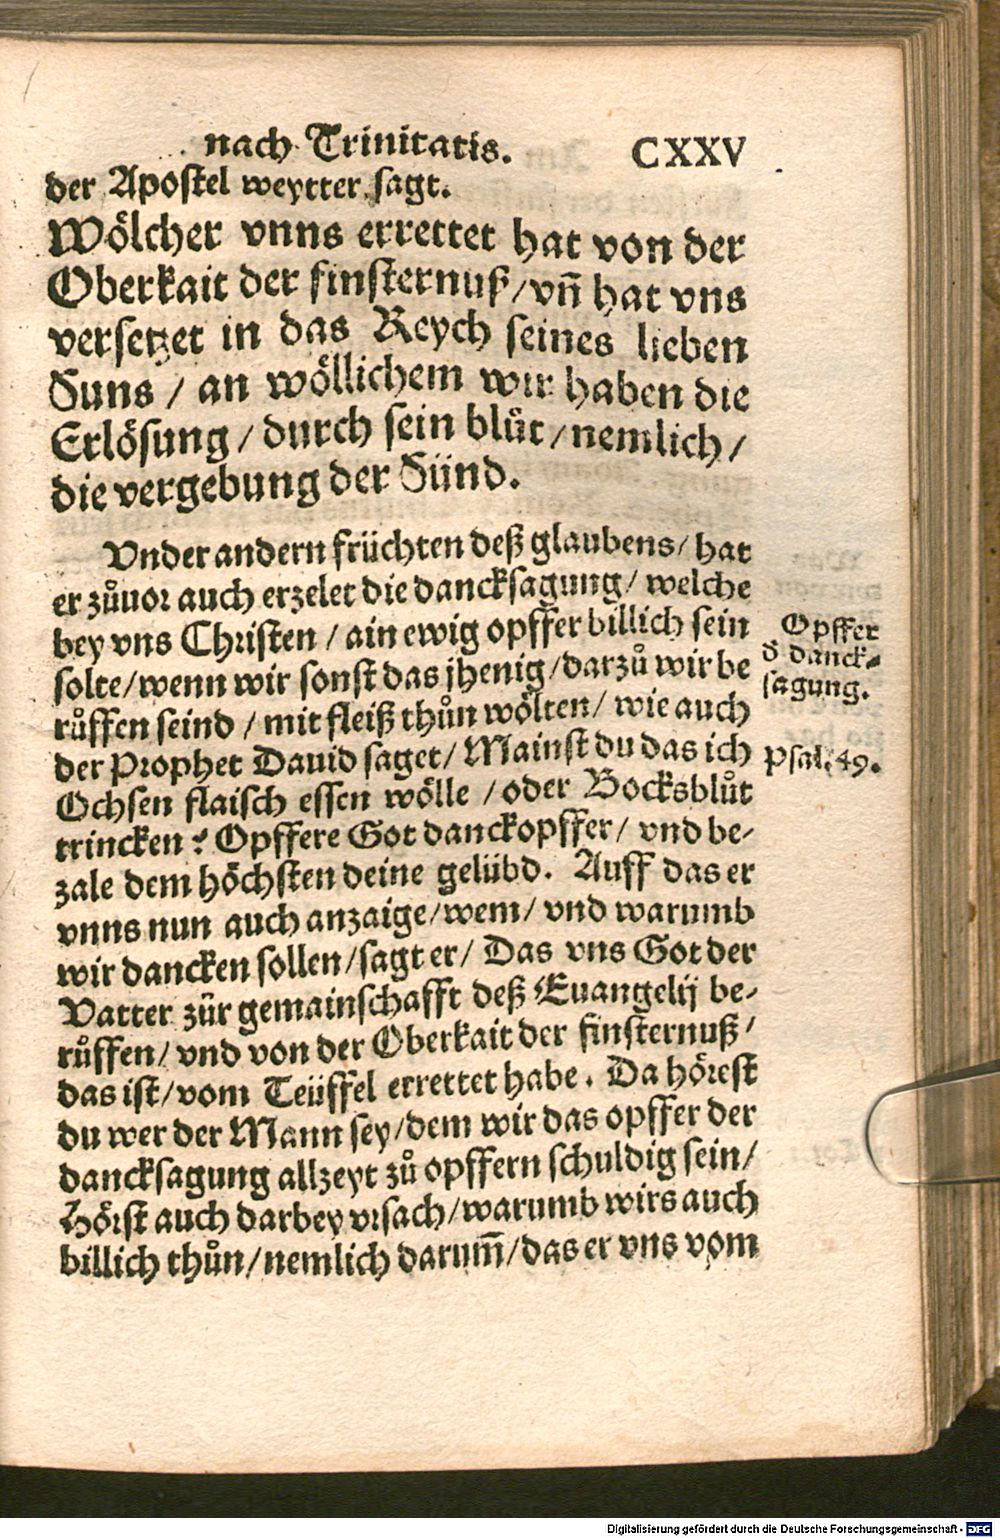 nach Trinitatis. CXXV
der Apostel weytter sagt.
Wölcher vnns errettet hat von der
Oberkait der finsternuß/vn̄ hat vns
versetzet in das Reych seines lieben
Suns / an wöllichem wir haben die
Erlösung / durch sein blůt / nemlich /
die vergebung der Sünd.
Vnder andern früchten deß glaubens/ hat
er zůuor auch erzelet die dancksagung/ welche
bey vns Christen / ain ewig opffer billich sein
solte/wenn wir sonst das jhenig/darzů wir be
růffen seind / mit fleiß thůn wölten/ wie auch
der Prophet Dauid saget/ Mainst du das ich
Ochsen flaisch essen wölle / oder Bocksblůt
trincken? Opffere Got danckopffer/ vnd be-
zale dem höchsten deine gelübd. Auff das er
vnns nun auch anzaige/wem/ vnd warumb
wir dancken sollen/sagt er/ Das vns Got der
Vatter zůr gemainschafft deß Euangelij be-
růffen/ vnd von der Oberkait der finsternuß/
das ist/vom Teüffel errettet habe. Da hörest
du wer der Mann sey/dem wir das opffer der
dancksagung allzeyt zů opffern schuldig sein/
Hörst auch darbey vrsach/warumb wirs auch
billich thůn/nemlich darum̄/das er vns vom
Opffer
d̕ danck-
sagung.
Psal. 49.
Digitalisierung gefördert durch die Deutsche Forschungsgemeinschaft - DFG